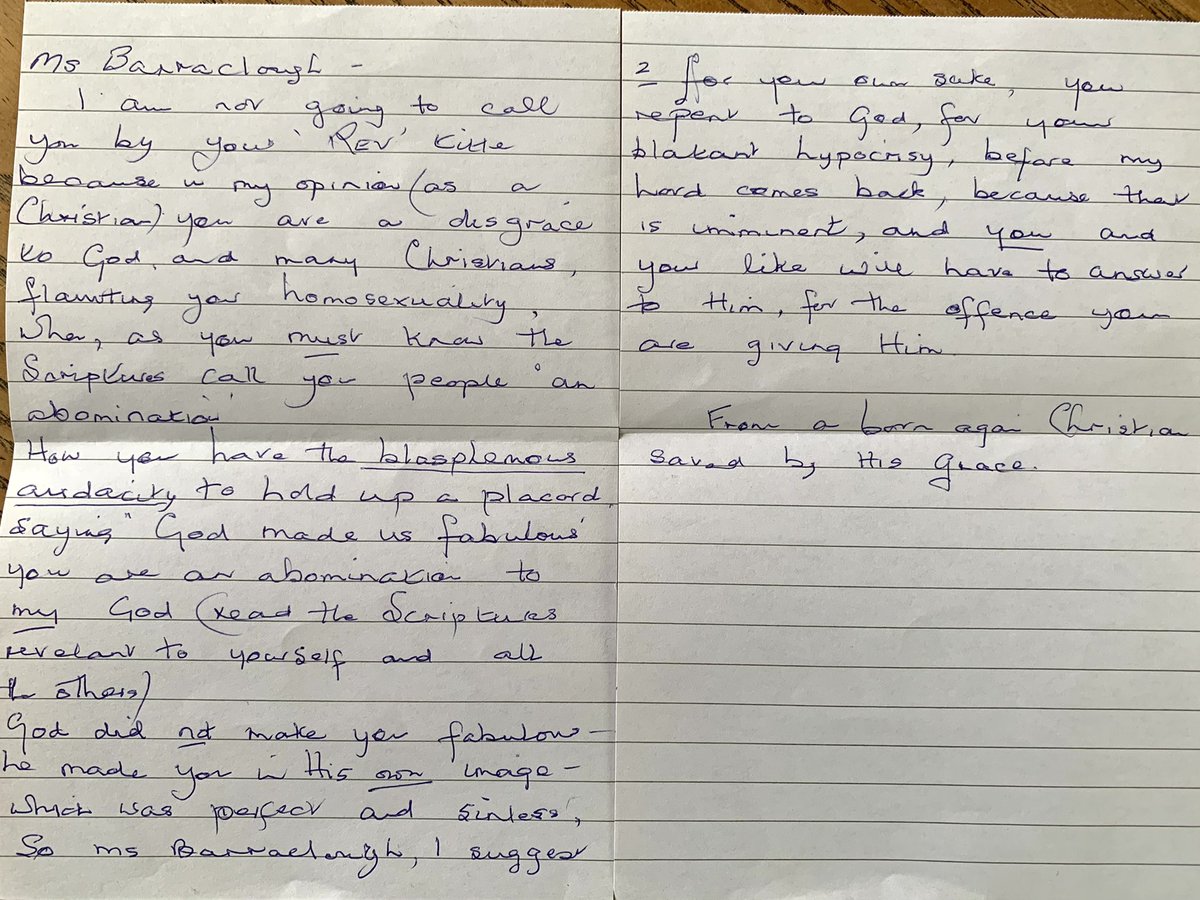 Ms Barraclough -
I am not going to call
you by your 'REV' title
because in my opinion (as a
Christian) you are a disgrace
to God, and many Christians,
flaunting your homosexuality,
when, as you must know the
Scriptures call you people 'an
abomination'
How you have the blasphemous
audacity to hold up a placord,
saying "God made us fabulous'
you are an abomination to
my God (read the Scriptures
revelant to yourself and all
the others)
God did not make you fabulous -
he made you in His own image -
which was perfect and sinless,
So ms Barraclough, I suggest
2 for your own sake, you
repent to God, for your
blatant hypocrisy, before my
Lord comes back, because that
is imminent, and you and
your like will have to answer
to Him, for the offence you
are giving Him
From a born again Christian
saved by His Grace.